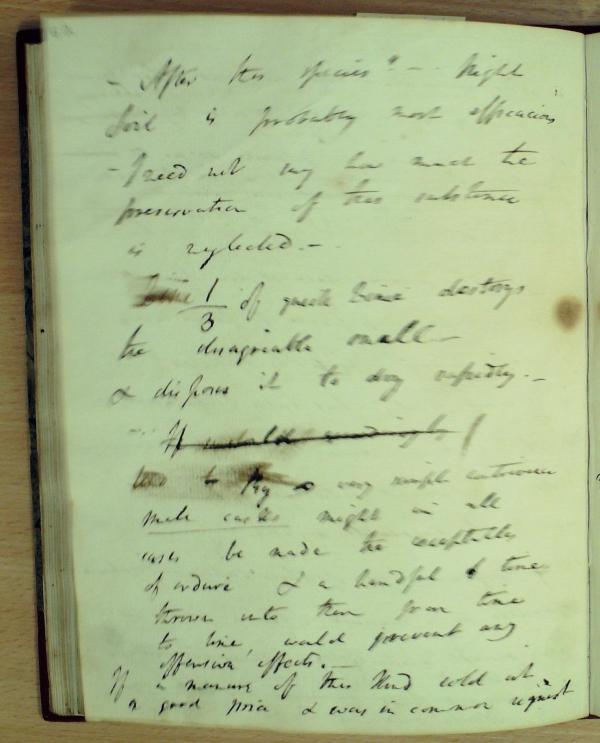 - After this species" - Night
Soil is probably most efficacious
- I need not say how much the
preservation of this substance
is neglected. -
1/3 of quick Lime destroys
the disagreeable smell -
& disposes it to dry rapidly. -
If
By a very simple contrivance
casks might in all
cases be made the receptacles
of ordure & a handful of lime
thrown into them from time
to time, would prevent any
offensive effects. -
If a manure of this kind sold at
a good price & was in common request